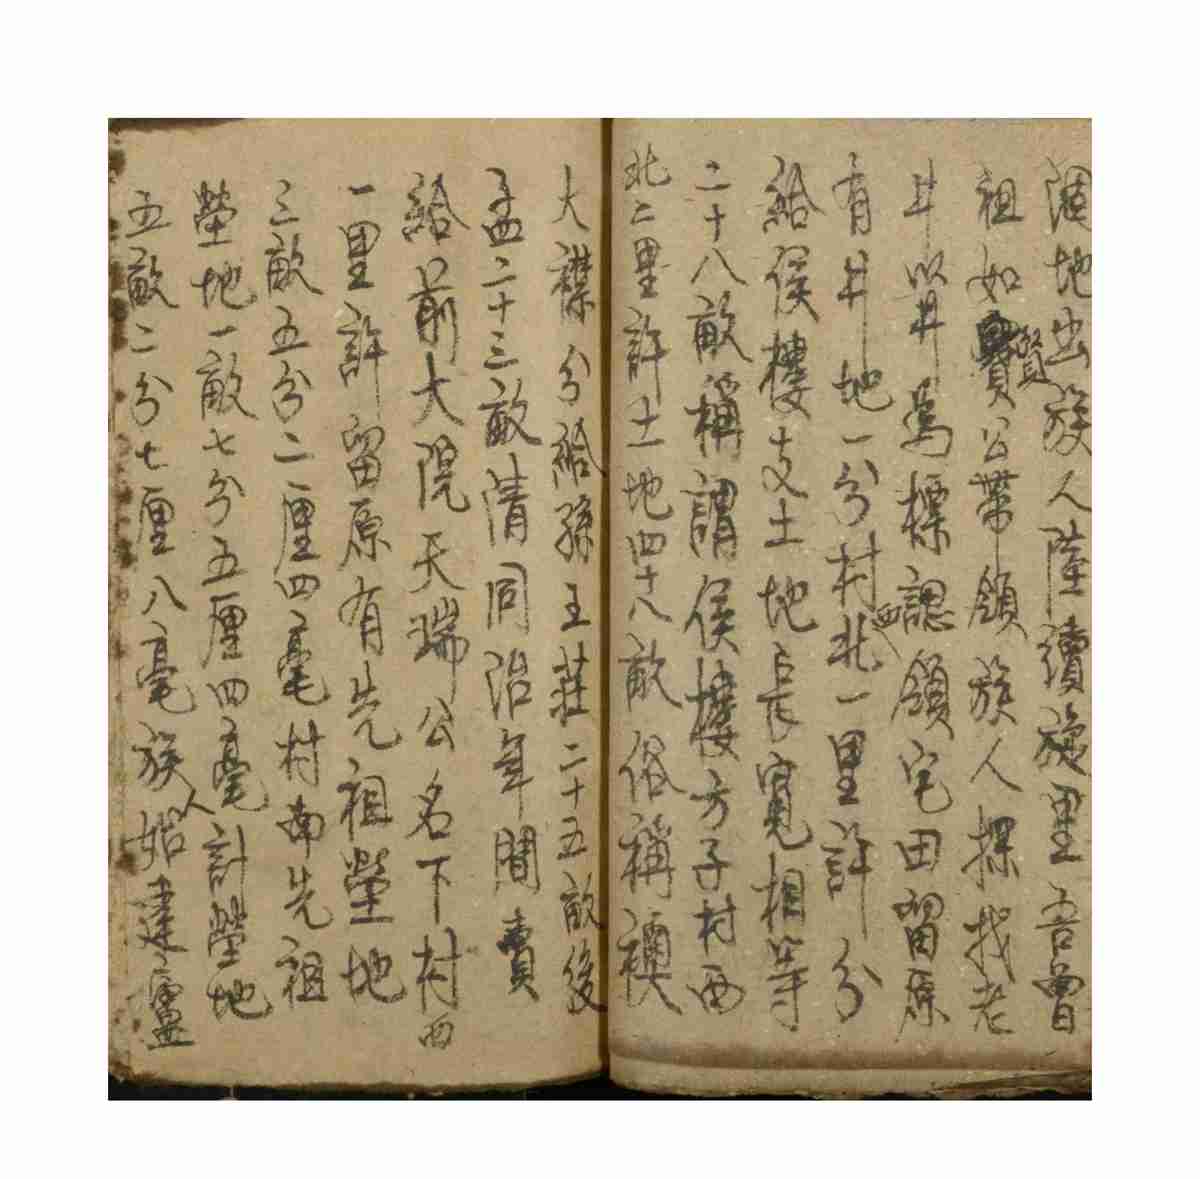 涸地出族人陸續旋里吾曾
祖如賢公帶領族人探找老
井以井為標認領宅田留原
有井地一分村西北一里許分
給侯樓支土地長寬相等
二十八畝稱謂侯樓方子村西
北二里許土地四十八畝俗稱
大襟分給孫王莊二十五畝後
孟二十三畝清同治年間賣
給前大院天瑞公名下村西
一里許留原有先祖塋地
三畝五分二厘四毫村南先祖
塋地一畝七分五厘四毫計塋地
五畝二分七厘八毫族人始建廬